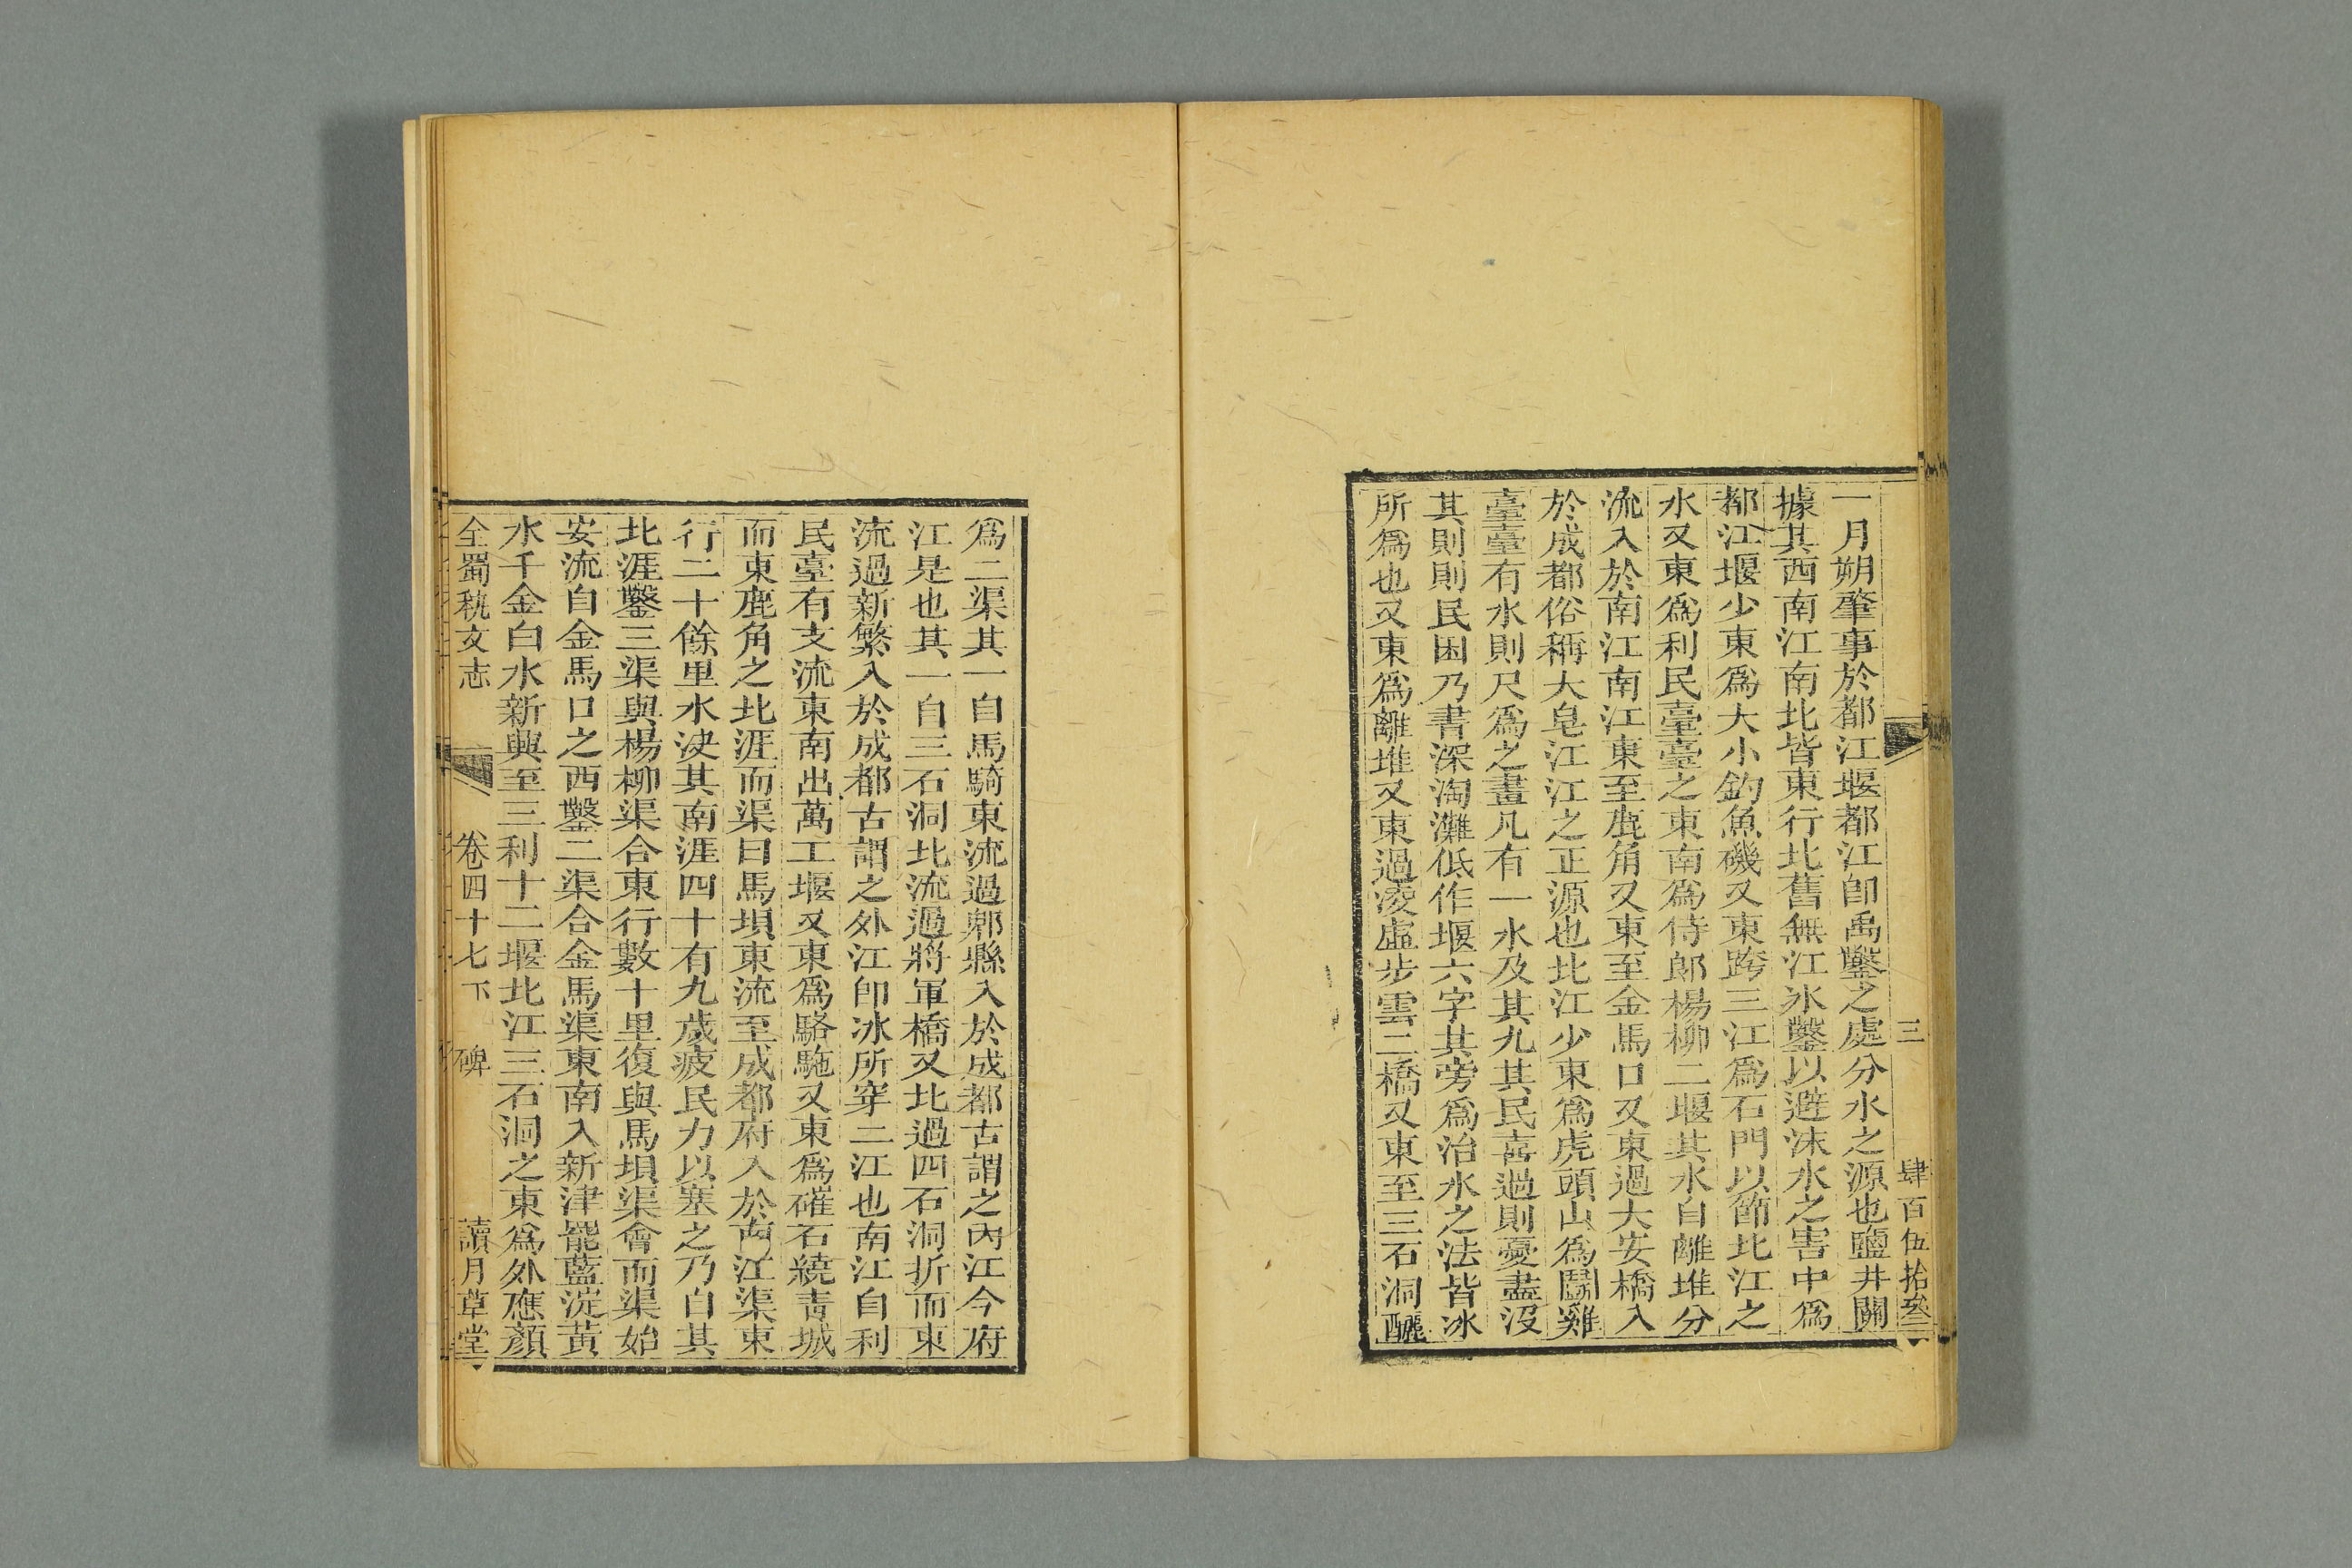 一月朔肇事於都江堰都江卽禹鑿之處分水之源也鹽井關
據其西南江南北皆東行北舊無江氷鑿以避沫水之害中爲
都江堰少東爲大小釣魚磯又東跨三江爲石門以節北江之
水又東爲利民臺臺之東南爲侍郞楊柳二堰其水自離堆分
流入於南江南江東至鹿角又東至金馬口又東過大安橋入
於成都俗稱大皂江江之正源也北江少東爲虎頭山爲鬭雞
臺臺有水則尺爲之畫凡有一水及其九其民喜過則憂盡沒
其則則民困乃書深淘灘低作堰六字其旁爲治水之法皆冰
所爲也又東爲離堆又東過凌虛步雲二橋又東至三石洞釃
三
肆百伍拾叁
爲二渠其一自馬騎東流過郫縣入於成都古謂之內江今府
江是也其一自三石洞北流過將軍橋又北過四石洞折而東
流過新繁入於成都古謂之外江卽冰所穿二江也南江自利
民臺有支流東南出萬工堰又東爲駱駞又東爲碓石繞靑城
而東鹿角之北涯而渠曰馬壩東流至成都府入於南江渠東
行二十餘里水決其南涯四十有九歲疲民力以塞之乃自其
北涯鑿三渠與楊柳渠合東行數十里復與馬壩渠會而渠始
安流自金馬口之西鑿二渠合金馬渠東南入新津罷藍淀黃
水千金白水新興至三利十二堰北江三石洞之東爲外應顏
全蜀秇文志
卷四十七下
碑
讀月草堂